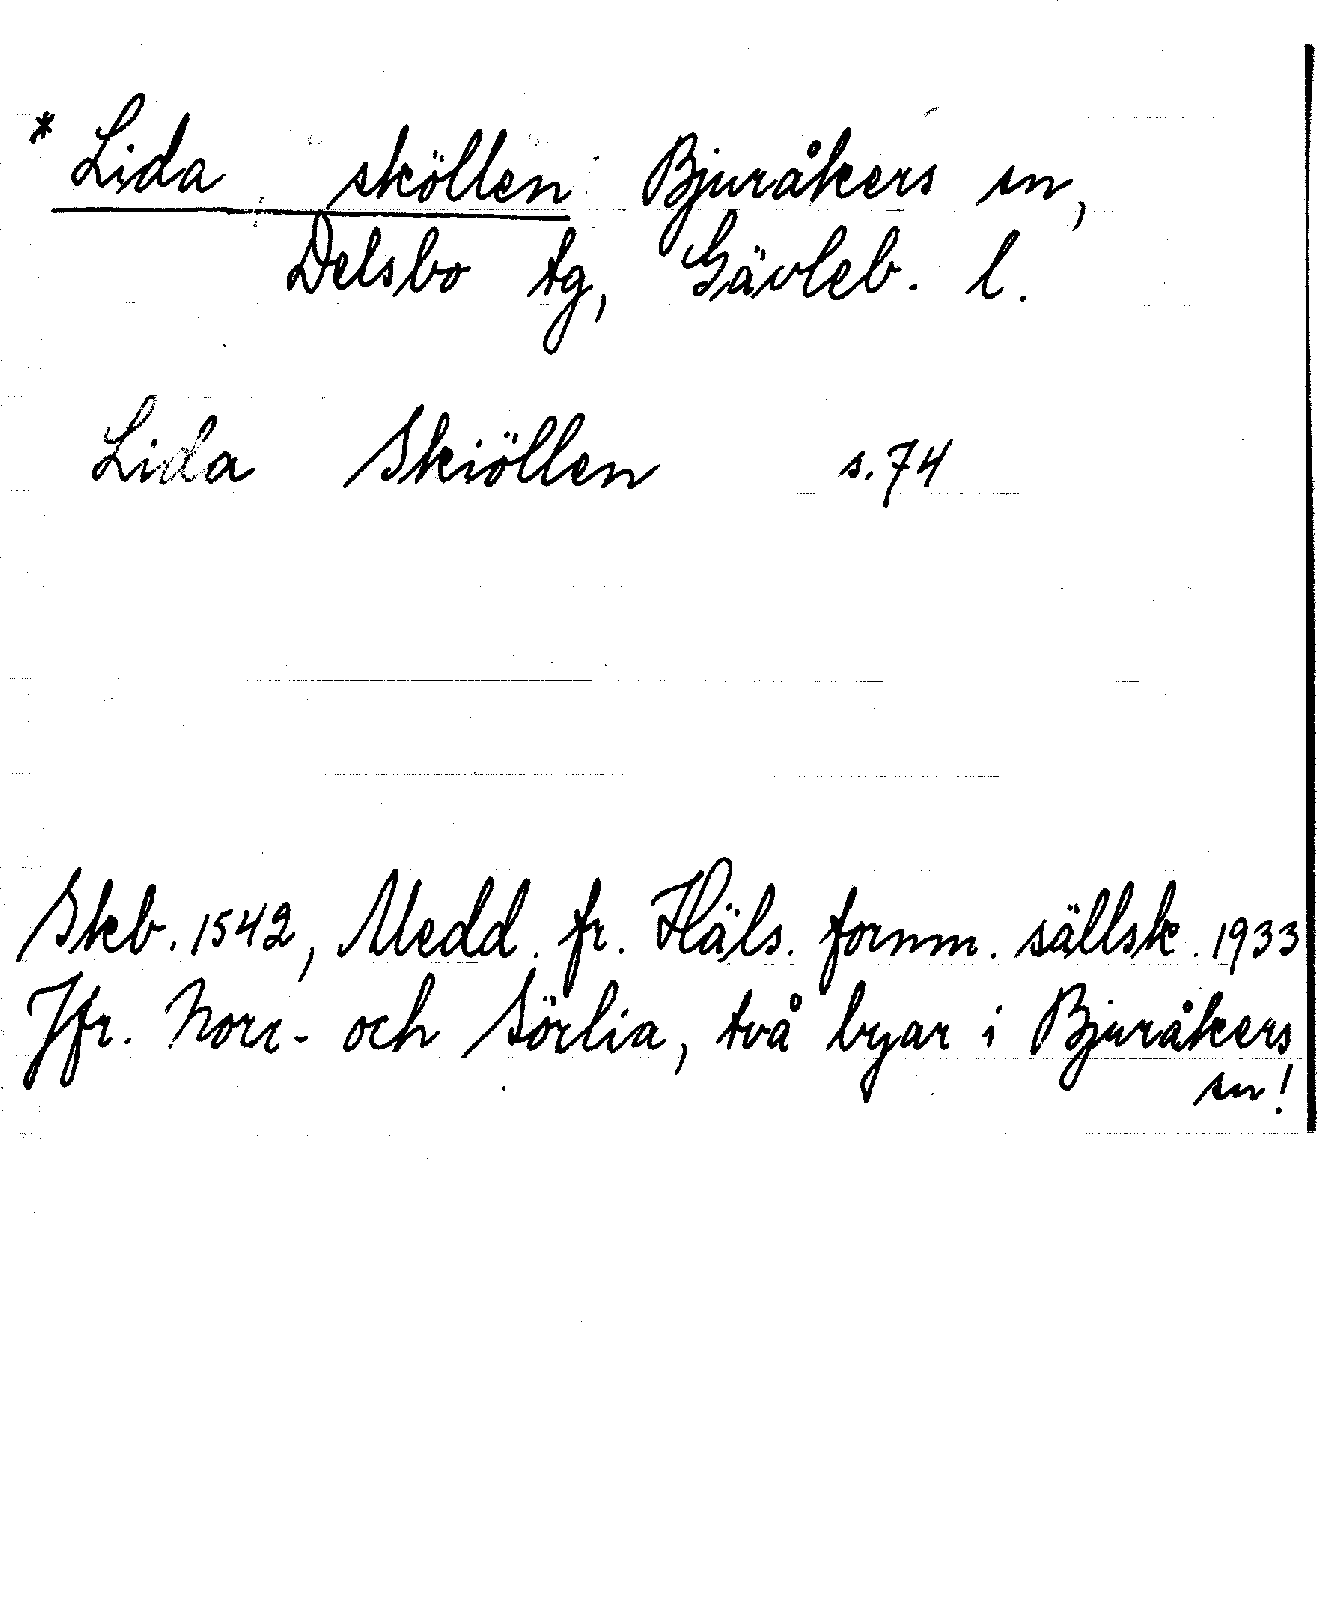 * Lida sköllen Bjuråkers sn,
Delsbo tg, Gävleb. l.
Lida Skiöllen s. 74
Skb. 1542, Medd. fr. Häls. fornm. sällsk. 1933
Jfr. Norr- och Sörlia, två byar i Bjuråkers
sn!